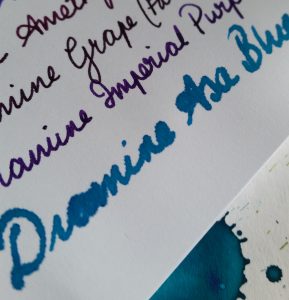 Ameth
mine Grape (Fa
iamine Imperial Purp
Diamine Asa Blue